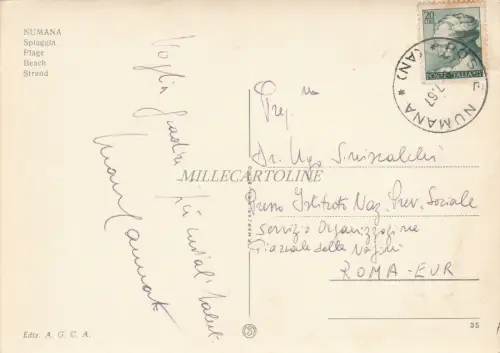 NUMANA
Spiaggia
Plage
Beach
Strand
Voglia gradire i più cordiali saluti
20
POSTE ITALIANE
POSTE NUMANA (AN)
7.67
Preg.mo
Dr. Ugo
Presso Istituto Naz. Prev. Sociale
Servizio Organizzazione
Piazzale delle
ROMA-EUR
MILLECARTOLINE
Ediz. A. G. C. A.
25